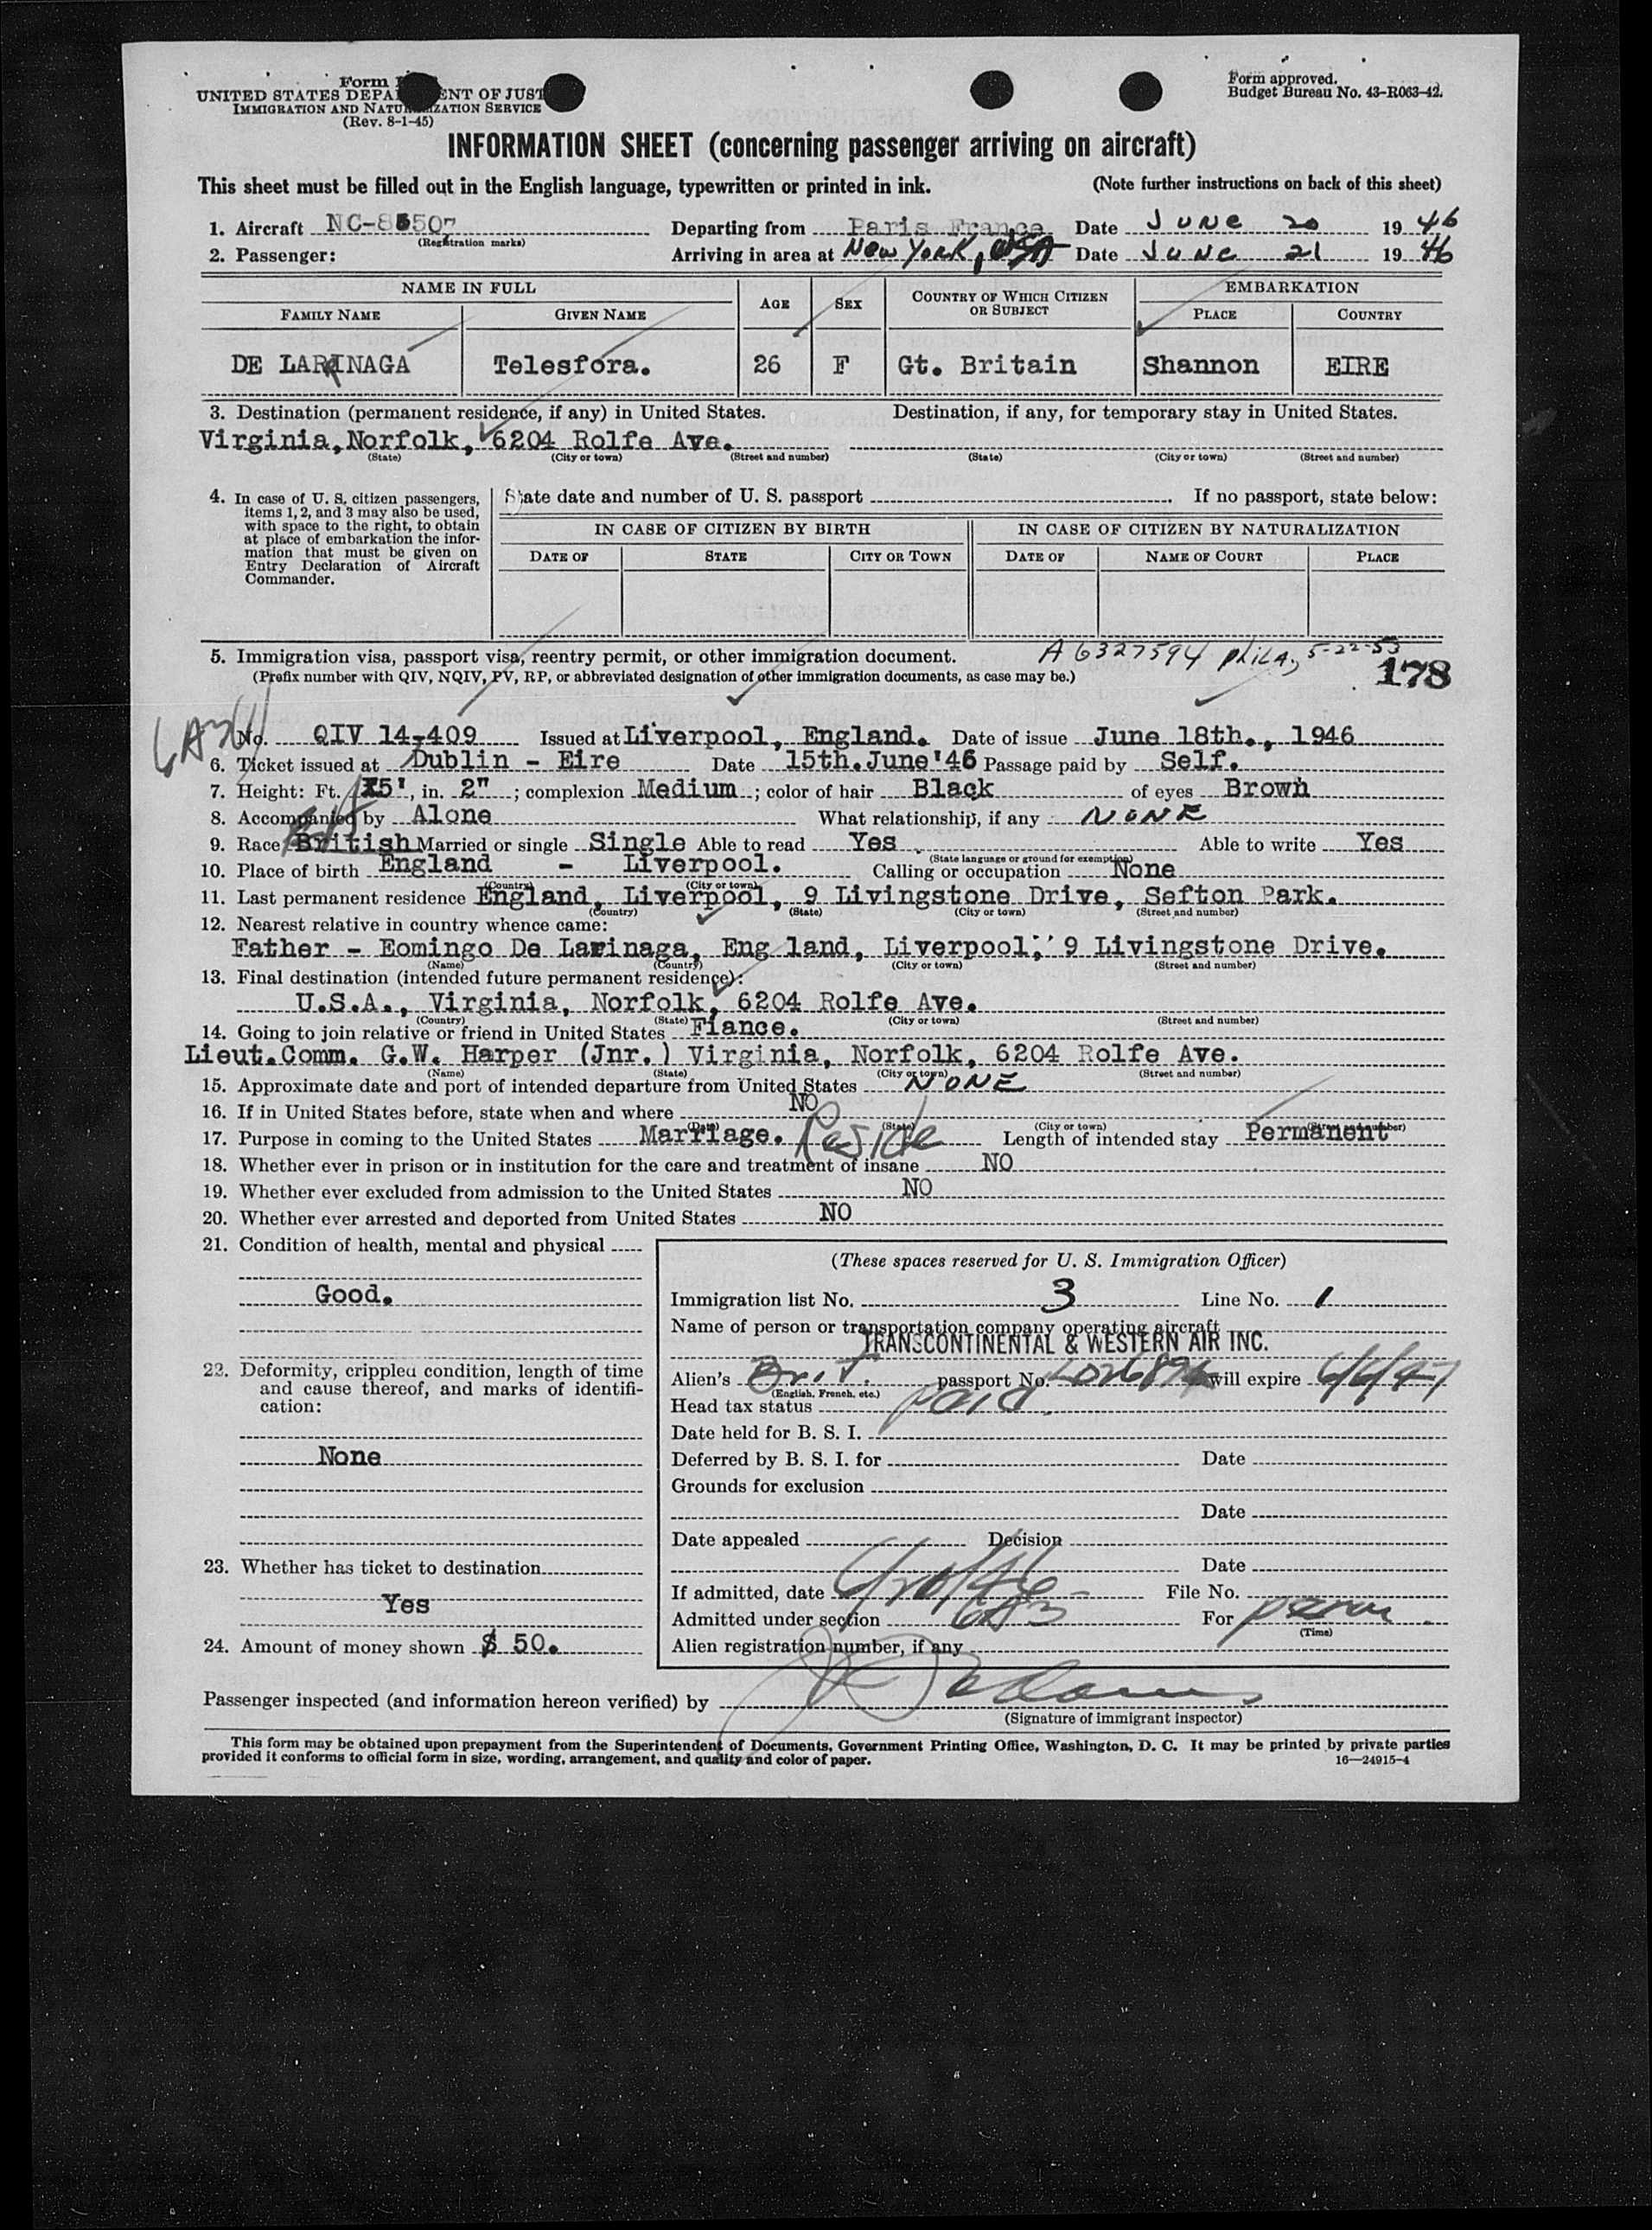 Form
UNITED STATES DEPA ENT OF JUST
IMMIGRATION AND NATU IZATION SERVICE
(Rev. 8-1-45)
Form approved.
Budget Bureau No. 43-R063-42.
INFORMATION SHEET (concerning passenger arriving on aircraft)
This sheet must be filled out in the English language, typewritten or printed in ink. (Note further instructions on back of this sheet)
1. Aircraft Departing from Paris France Date JUNE 20 1946
(Registration marks)
2. Passenger: Arriving in area at New York, USA Date JUNE 21 1946
NAME IN FULL AGE SEX COUNTRY OF WHICH CITIZEN OR SUBJECT EMBARKATION
FAMILY NAME GIVEN NAME PLACE COUNTRY
DE LARRINAGA Telesfora. 26 F Gt. Britain Shannon EIRE
3. Destination (permanent residence, if any) in United States. Destination, if any, for temporary stay in United States.
Virginia, Norfolk, 6204 Rolfe Ave.
(State) (City or town) (Street and number) (State) (City or town) (Street and number)
4. In case of U. S. citizen passengers, items 1, 2, and 3 may also be used, with space to the right, to obtain at place of embarkation the information that must be given on Entry Declaration of Aircraft Commander.
State date and number of U. S. passport If no passport, state below:
IN CASE OF CITIZEN BY BIRTH IN CASE OF CITIZEN BY NATURALIZATION
DATE OF STATE CITY OR TOWN DATE OF NAME OF COURT PLACE
5. Immigration visa, passport visa, reentry permit, or other immigration document. A 6327594 Phila, 5-22-53
(Prefix number with QIV, NQIV, PV, RP, or abbreviated designation of other immigration documents, as case may be.) 178
No. QIV 14-409 Issued at Liverpool, England. Date of issue June 18th., 1946
6. Ticket issued at Dublin - Eire Date 15th.June'46 Passage paid by Self.
7. Height: Ft. 5', in. 2" ; complexion Medium ; color of hair Black of eyes Brown
8. Accompanied by Alone What relationship, if any NONE
9. Race British Married or single Single Able to read Yes Able to write Yes
(State language or ground for exemption)
10. Place of birth England - Liverpool. Calling or occupation None
(Country) (City or town)
11. Last permanent residence England, Liverpool, 9 Livingstone Drive, Sefton Park.
(Country) (State) (City or town) (Street and number)
12. Nearest relative in country whence came:
Father - Eomingo De Larinaga, Eng land, Liverpool, 9 Livingstone Drive.
(Name) (Country) (City or town) (Street and number)
13. Final destination (intended future permanent residence):
U.S.A., Virginia, Norfolk, 6204 Rolfe Ave.
(Country) (State) (City or town) (Street and number)
14. Going to join relative or friend in United States Fiance.
Lieut.Comm. G.W. Harper (Jnr.) Virginia, Norfolk, 6204 Rolfe Ave.
(Name) (State) (City or town) (Street and number)
15. Approximate date and port of intended departure from United States NONE
16. If in United States before, state when and where NO
(Date) (State) (City or town) (Street and number)
17. Purpose in coming to the United States Marriage. Reside Length of intended stay Permanent
18. Whether ever in prison or in institution for the care and treatment of insane NO
19. Whether ever excluded from admission to the United States NO
20. Whether ever arrested and deported from United States NO
21. Condition of health, mental and physical
Good.
22. Deformity, crippled condition, length of time and cause thereof, and marks of identification:
None
23. Whether has ticket to destination
Yes
24. Amount of money shown $ 50.
(These spaces reserved for U. S. Immigration Officer)
Immigration list No. 3 Line No. 1
Name of person or transportation company operating aircraft
TRANSCONTINENTAL & WESTERN AIR INC.
Alien's Brit. passport No. will expire 6/6/47
(English, French, etc.)
Head tax status paid
Date held for B. S. I.
Deferred by B. S. I. for Date
Grounds for exclusion
Date
Date appealed Decision
Date
If admitted, date File No.
Admitted under section 6A3 For perm.
(Time)
Alien registration number, if any
Passenger inspected (and information hereon verified) by
(Signature of immigrant inspector)
This form may be obtained upon prepayment from the Superintendent of Documents, Government Printing Office, Washington, D. C. It may be printed by private parties
provided it conforms to official form in size, wording, arrangement, and quality and color of paper. 16—24915-4